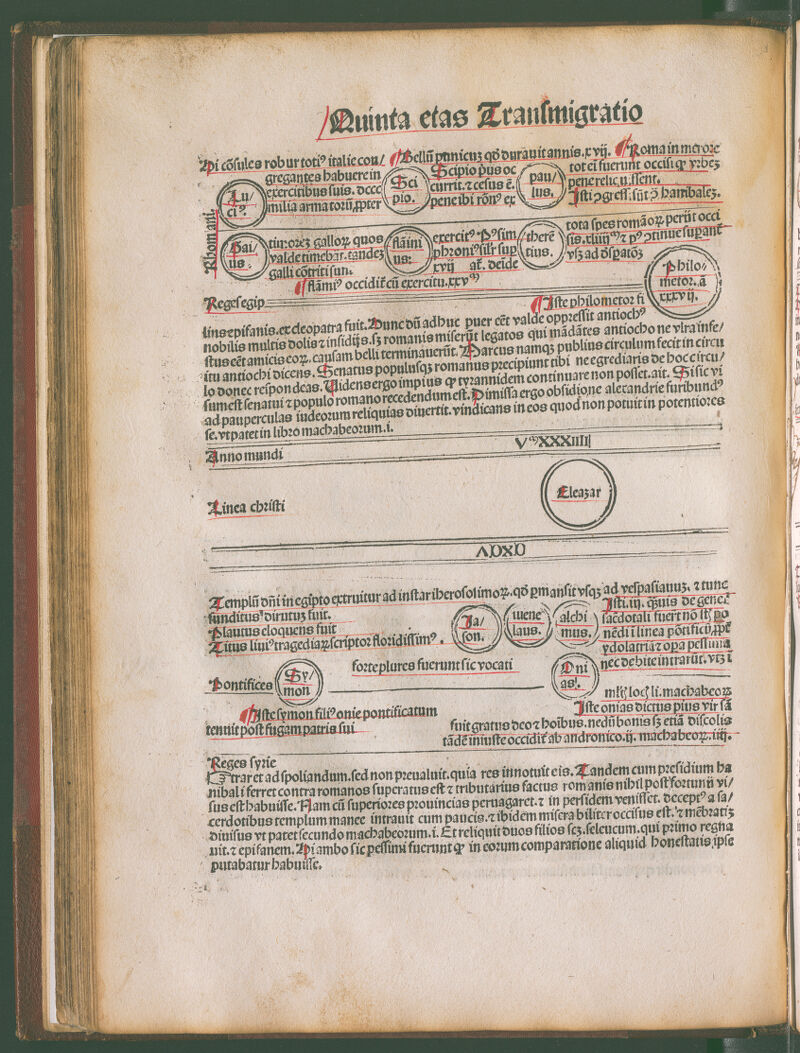 Quinta etas Transmigratio
Hi cõsules robur totiꝰ italie con/
gregantes habuere in
exercitibus suis. dccc
milia armatorũ, ꝓpter
Lu/
ciꝰ.
Bellũ punicuꝫ qd̓ durauit annis. xvij.
Sci
pio.
Scipio pus oc
currit. ⁊ cesus ẽ.
pene ibi rõnꝰ ex
pau/
lus.
Roma in merore
tot ei fuerunt occisi ꝙ vrbeꝫ
pene relic. u. ssent.
Isti ↄgress. sũt ↄ̃ hanibaleꝫ.
Rhomani
Gai/
us.
timorez galloꝝ quos
valde timebãt. tandeꝫ
galli cõtriti sun.
flãini
us.
exercitꝰ.
xvij
deĩde
therẽ
tius.
tota spes romãoꝝ perijt occi
flãmiꝰ occidit̃ cũ exercitu. xxv
Reges egip
Philo/
metor. ã
xxxvij.
Iste philometor fi
lius epifanis. ex cleopatra fuit. Hunc dũ adhuc puer eẽt valde oppressit antiochꝰ
nobilis multis dolis ⁊ insidijs. sꝫ romanis miserũt legatos qui mãdãtes antiocho ne vlra infe/
stus eẽt amicis eoꝝ. causam belli terminauerũt. Marcus namqꝫ publius circulum fecit in circu
itu antiochi dicens. Senatus populusqꝫ romanus precipiunt tibi ne egrediaris de hoc circu/
lo donec respondeas. Videns ergo impius ꝙ tyrannidem continuare non posset. ait. Si sic vi
sum est senatui ⁊ populo romano recedendum est. Dimissa ergo obsidione alexandrie furibundꝰ
ad pauperculas iudeorum reliquias diuertit. vindicans in eos quod non potuit in potentiores
se. vt patet in libro machabeorum. i.
Anno mundi
Vᵐ XXXIIII
Linea christi
Eleazar
Templũ dñi in egipto extruitur ad instar iherosolimoꝝ. qd̓ ꝑmansit vsqꝫ ad vespasianuꝫ. ⁊ tunc
funditus dirutuꝫ fuit.
Plautus eloquens fuit
Titus liuiꝰ tragediaꝝ scriptor floridissimꝰ.
Ja/
son.
mene
laus.
alchi
mus.
Isti. iij. q̃uis de gene
sacdotali fuerĩt nõ
nec debite intrarũt. vtꝫ i
forte plures fuerunt sic vocati
Pontifices
Sy/
mon
Oni
as.
li. machabeoꝝ
Iste symon filiꝰ onie pontificatum
tenuit post fugam patris sui
Iste onias dictus pius vir fã
fuit gratus deo ⁊ hoĩbus. nedũ bonis sꝫ etiã discolis
tãdẽ iniuste occidit̃ ab andronico. ij. machabeoꝝ. iiij.
Reges syrie
traret ad spoliandum. sed non preualuit. quia res innotuit eis. Tandem cum presidium ha
nibali ferret contra romanos superatus est ⁊ tributarius factus romanis nihil post fortunũ vi/
sus est habuisse. Nam cũ superiores prouincias peruagaret. ⁊ in persidem venisset. deceptꝰ a sa/
cerdotibus templum manee intrauit cum paucis. ⁊ ibidem misera biliter occisus est. ⁊ mẽbratiꝫ
diuisus vt patet secundo machabeorum. i. Et reliquit duos filios scꝫ. seleucum. qui primo regna
uit. ⁊ epifanem. Hi ambo sic pessimi fuerunt ꝙ in eorum comparatione aliquid honestatis ipse
putabatur habuisse.